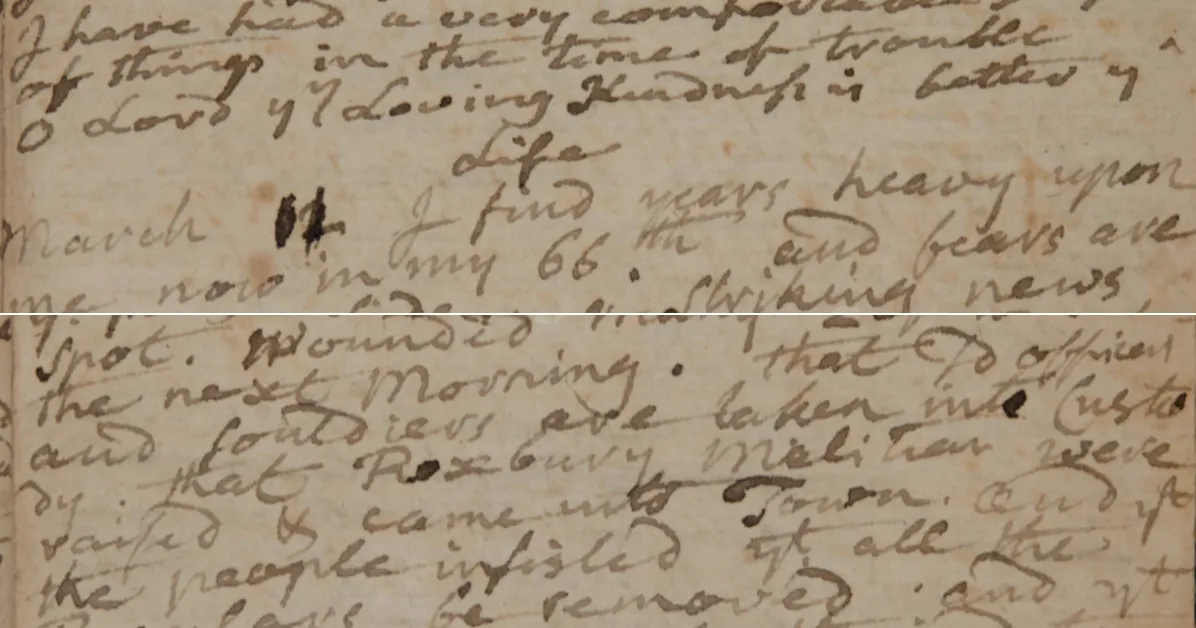 I have had a very comfortable
of things in the time of trouble
O Lord yr Loving Kindness is better yn
Life
March 12 I find years heavy upon
me now in my 66th. and fears are
Striking news
spot. Wounded
the next Morning. that ye officers
and souldiers are taken into Custo
dy. that Roxbury Militiar were
raised & came into Town. and yt
the people insisted yt all the
be removed. and yt